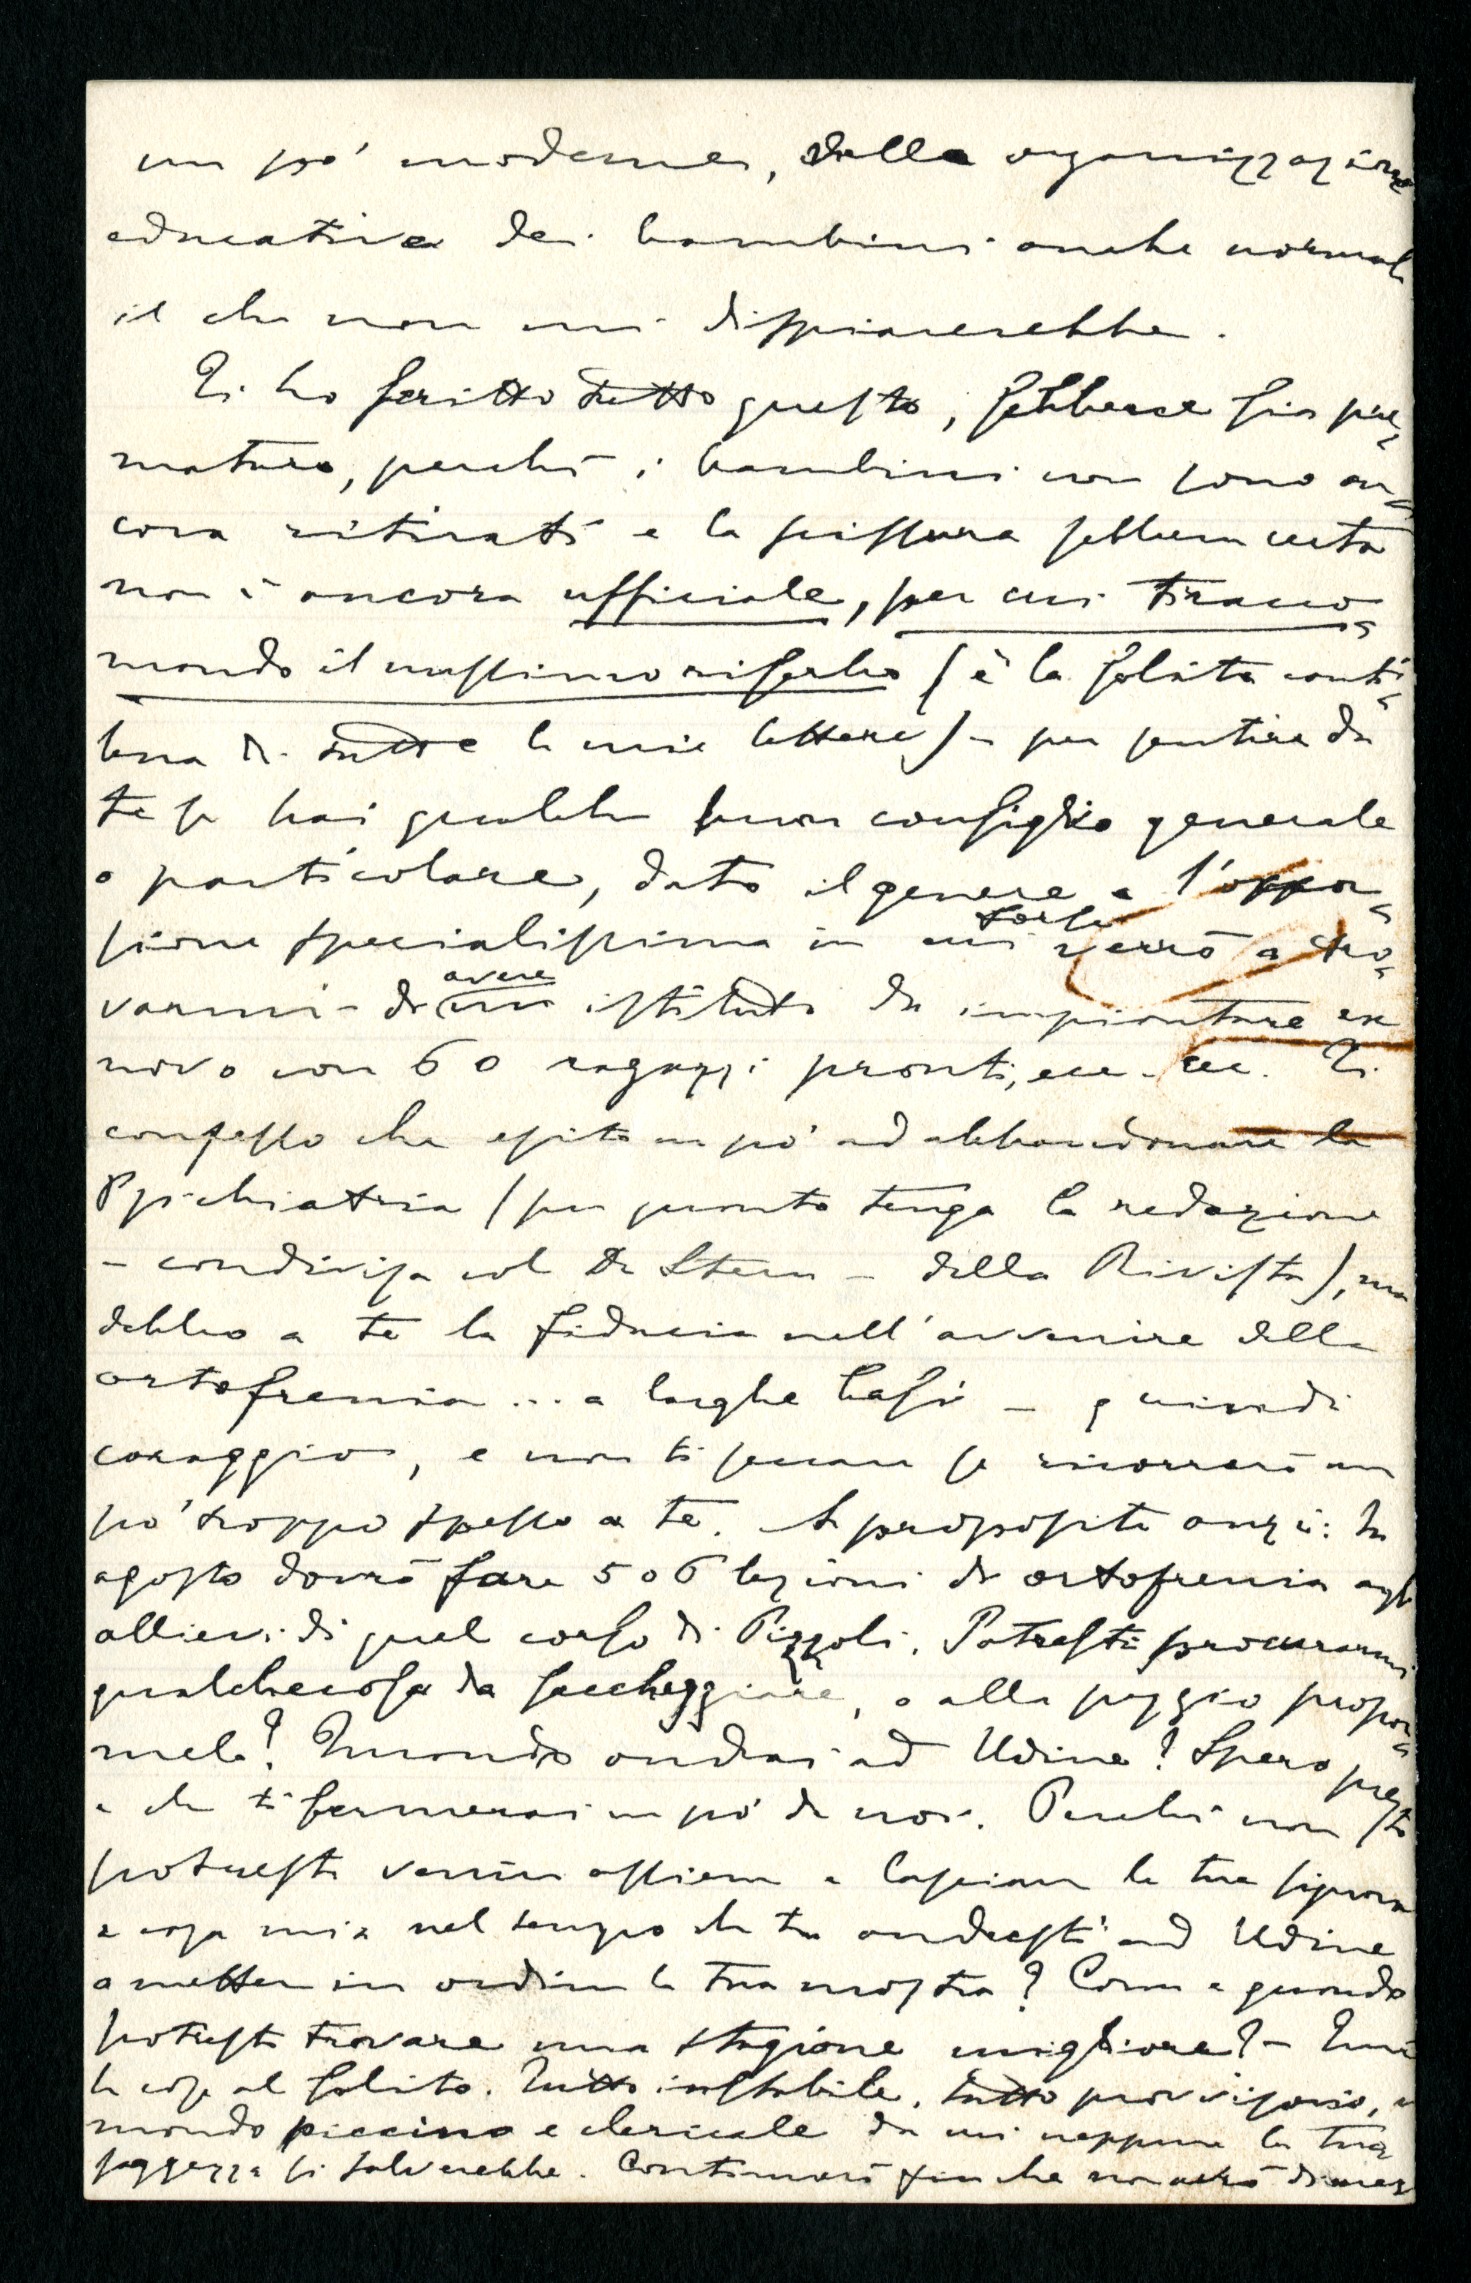 un pó moderna, della organizzazione
educativa dei bambini anche normali
il che non mi dispiacerebbe.
Ti ho scritto tutto questo, sebbene sia pre-
maturo, perchè i bambini non sono an-
cora ritirati e la scissura sebbene certa
non è ancora ufficiale, per cui ti racco-
mando il massimo riserbo (è la solita canti-
lena di tutte le mie lettere) - per sentire da
te se hai qualche buon consiglio generale
o particolare, dato il genere e l'occa-
sione specialissima in cui forse verrò a tro-
varmi - di avere un istituto da impiantare ex
novo con 60 ragazzi pronti, ecc. ecc. Ti
confesso che esito un pó ad abbandonare la
Psichiatria (per quanto tenga la redazione
- condivisa col Dr Stern - della Rivista), ma
debbo a te la fiducia nell'avvenire della
ortofrenia ... a larghe basi - quindi
coraggio, e non ti seccare se ricorrerò un
pó troppo spesso a te. A proposito anzi: In
agosto dovrò fare 5 o 6 lezioni di ortofrenia agli
allievi di quel corso di Pizzoli. Potresti procurarmi
qualchecosa da saccheggiare, o alla peggio propor-
mela? Quando andrai ad Udine? Spero presto
e che ti fermerai un pó da noi. Perchè non
potresti venire assieme e lasciare la tua signora
a casa mia nel tempo che tu andresti ad Udine
a mettere in ordine la tua mostra? Come e quando
potresti trovare una stagione migliore? - Qui
le cose al solito. Tutto instabile, tutto provvisorio, un
mondo piccino e clericale da cui neppure la tua
saggezza si salverebbe. Continuerò finchè non avrò di meglio